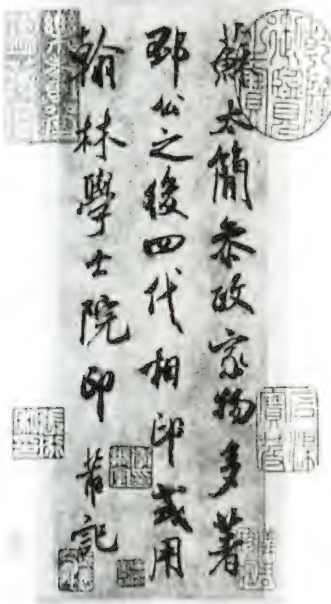 蘇太簡叅政家物多著
邳公之後四代相印或用
翰林學士院印芾記
石渠寶笈